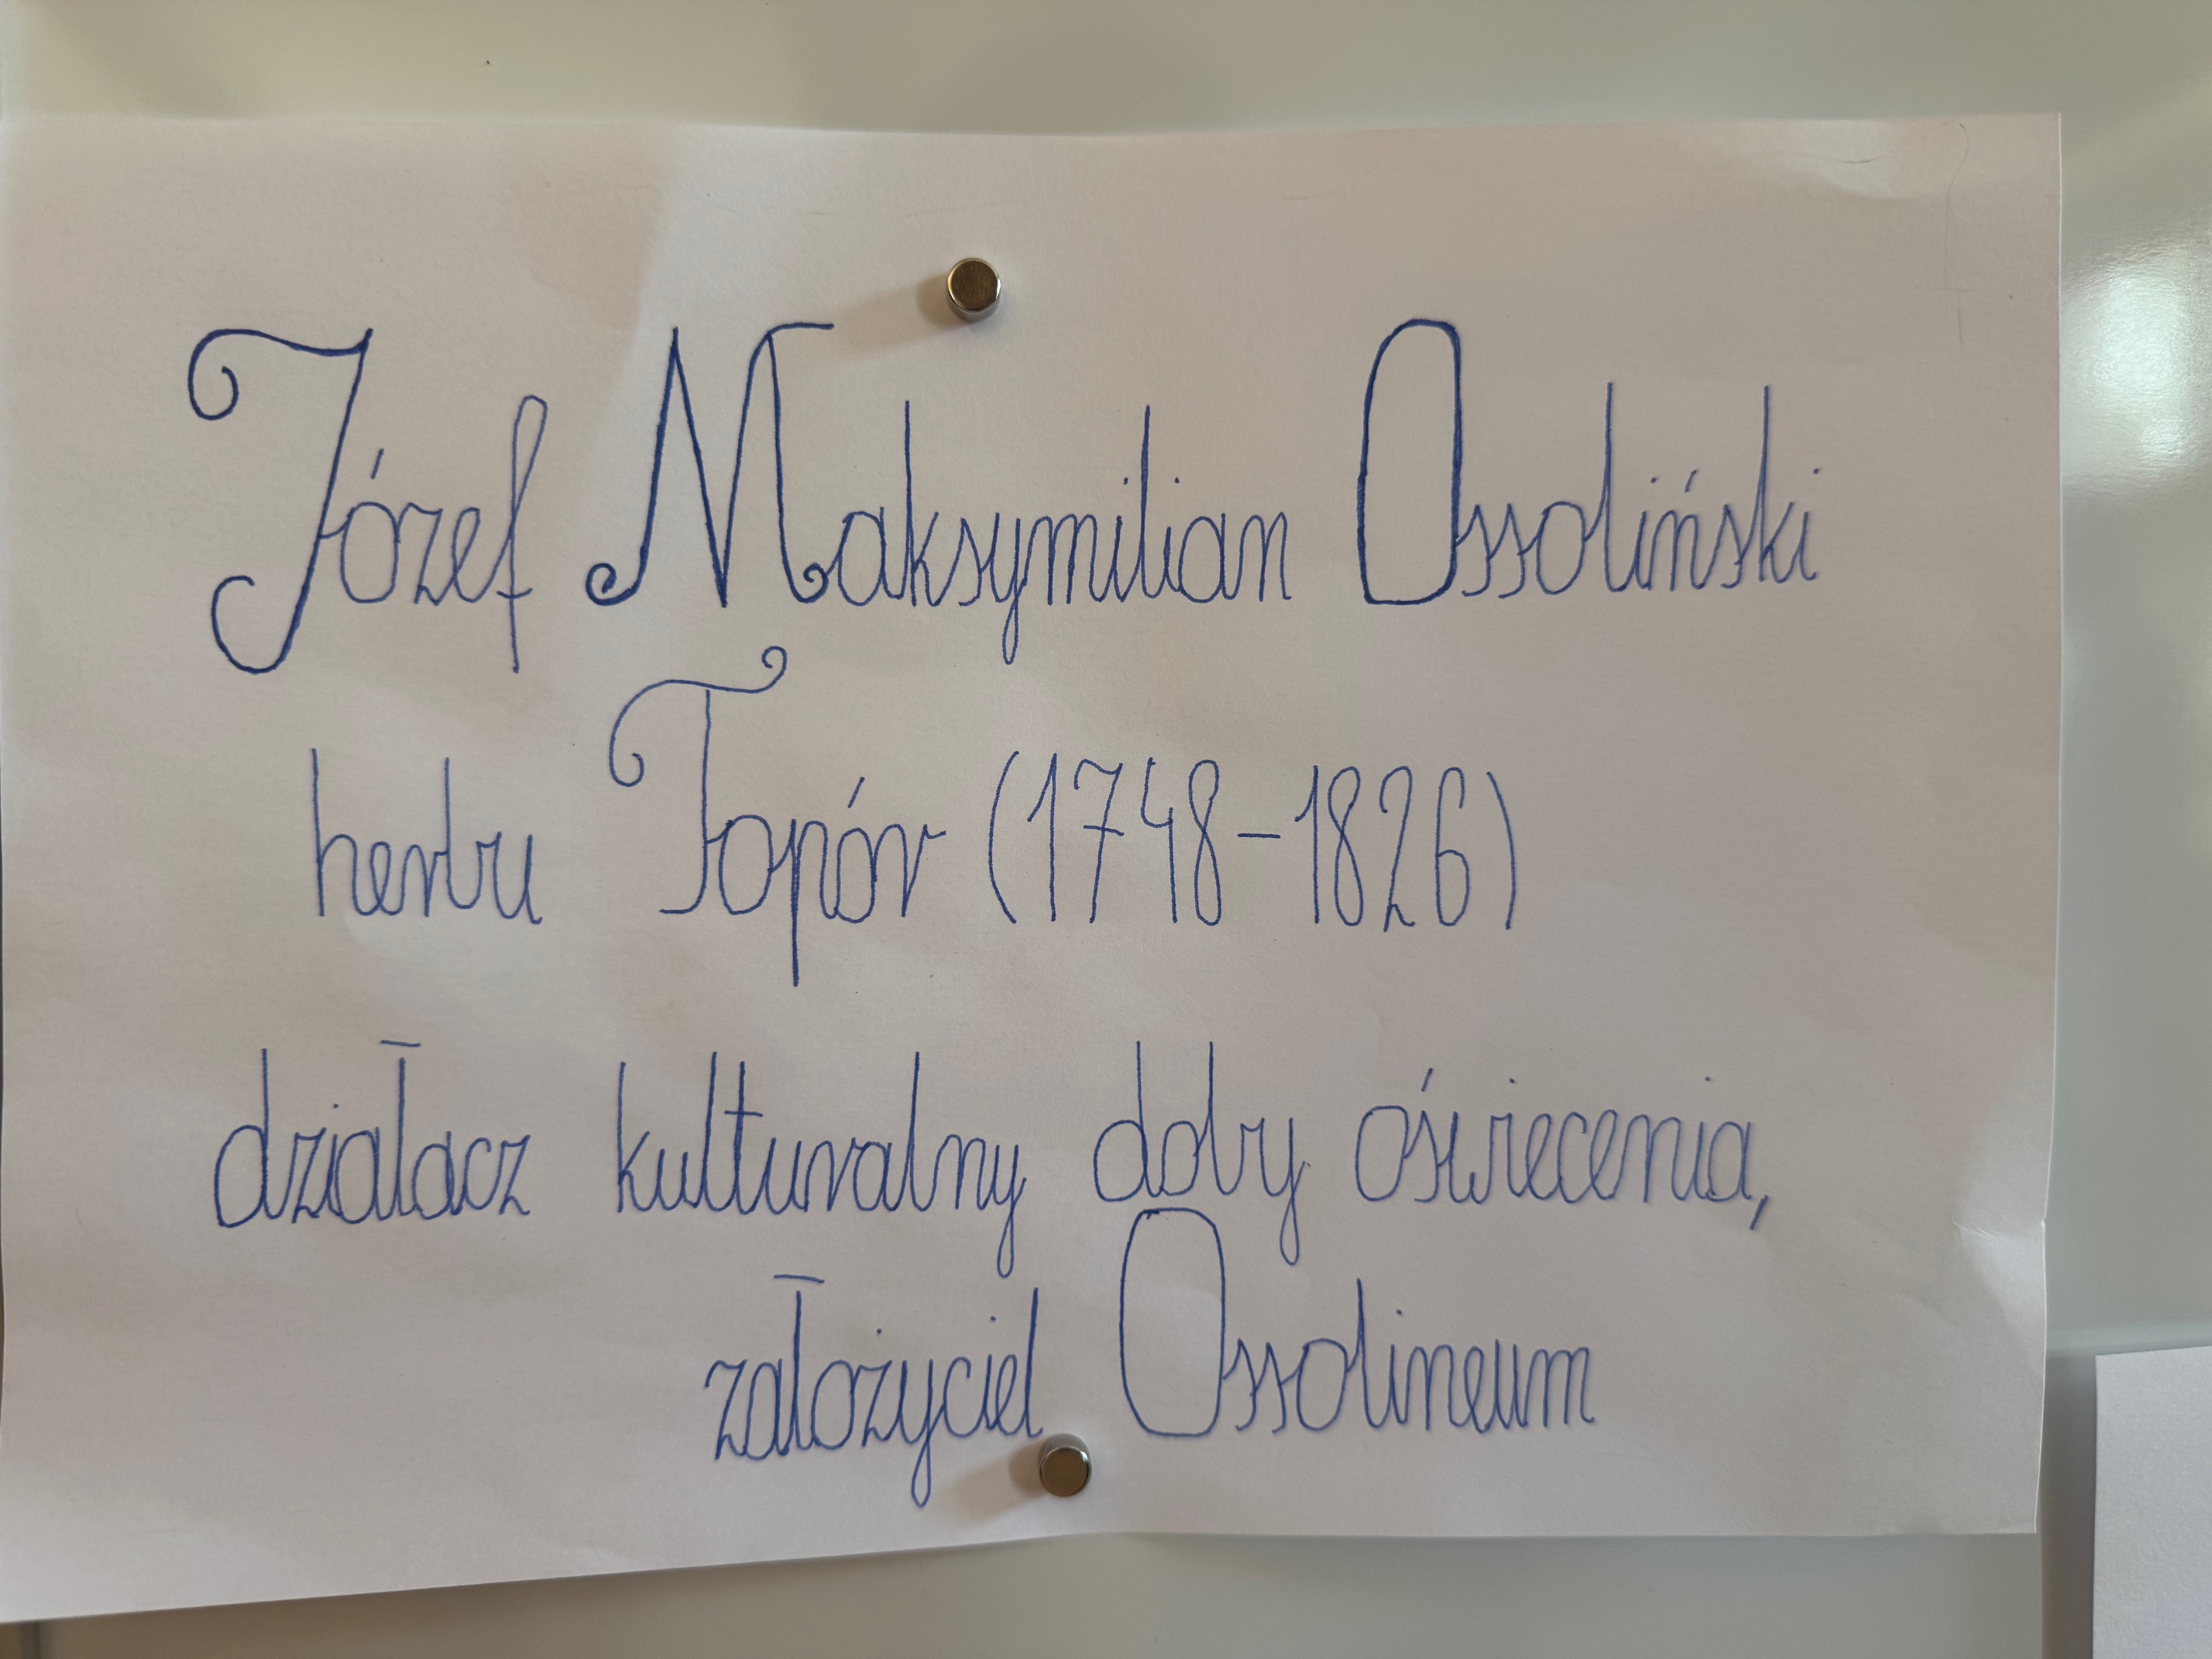 Józef Maksymilian Ossoliński
herbu Topór (1748-1826)
działacz kulturalny doby oświecenia,
założyciel Ossolineum